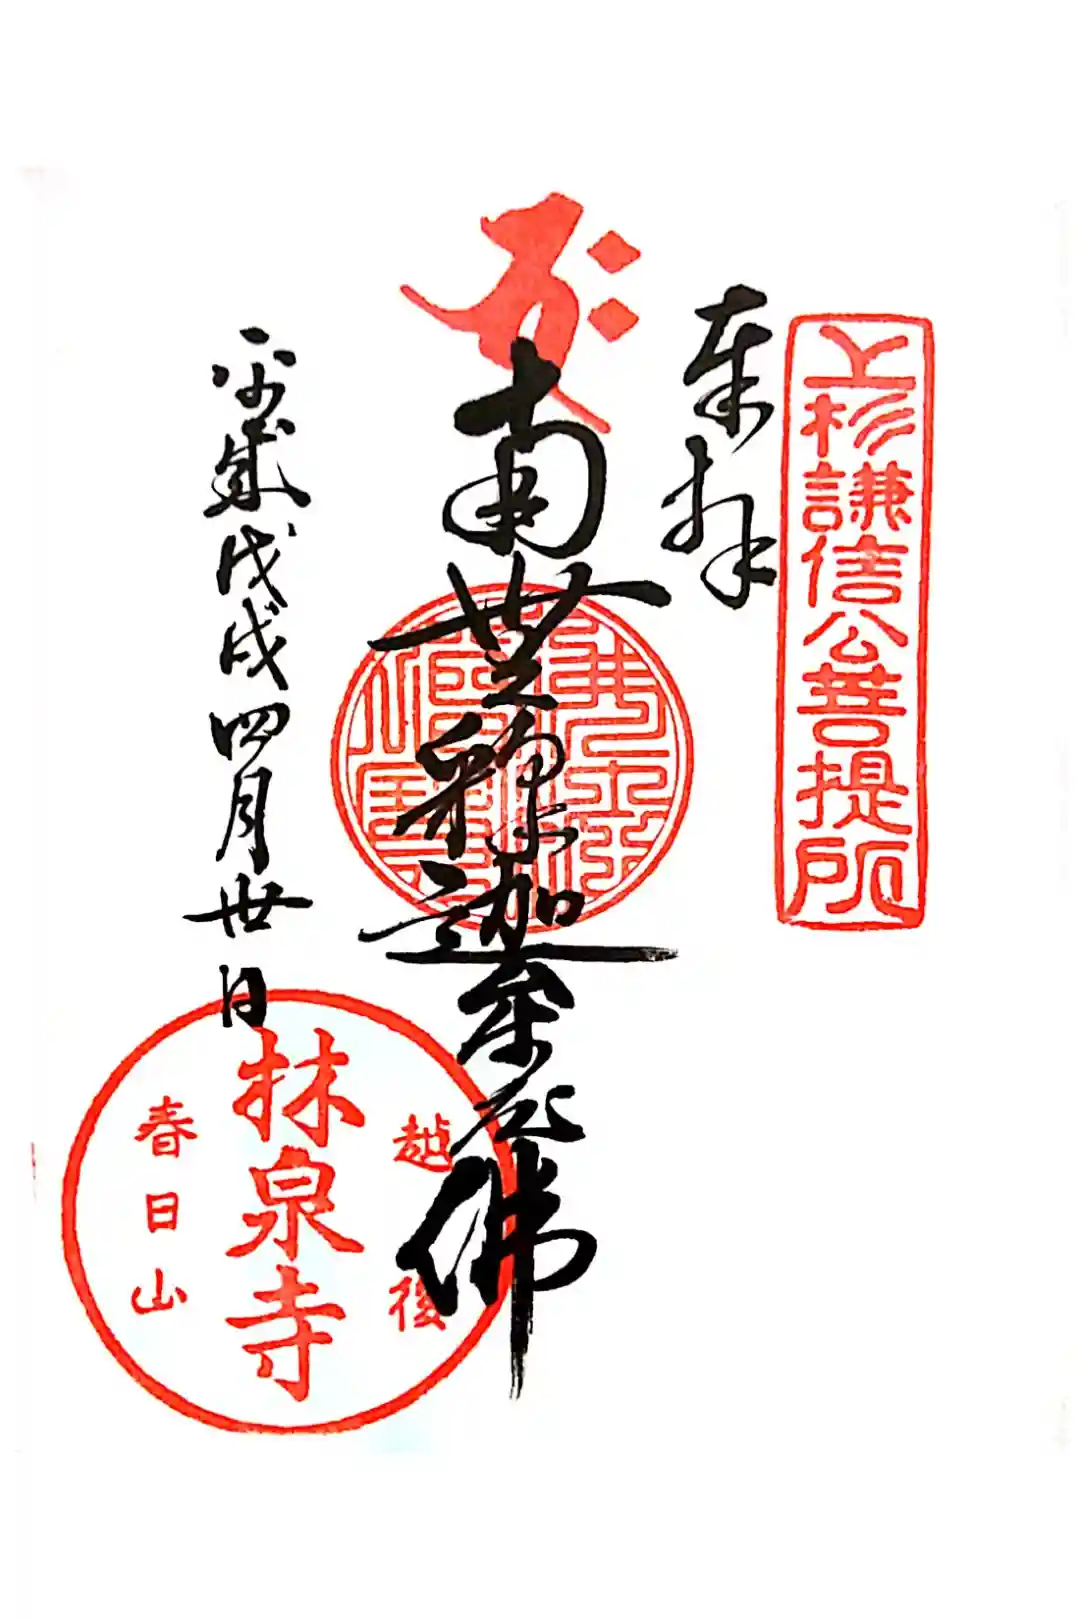 上杉謙信公菩提所
奉拝
南無釋迦牟尼佛
戊戌四月丗日
越後
林泉寺
春日山